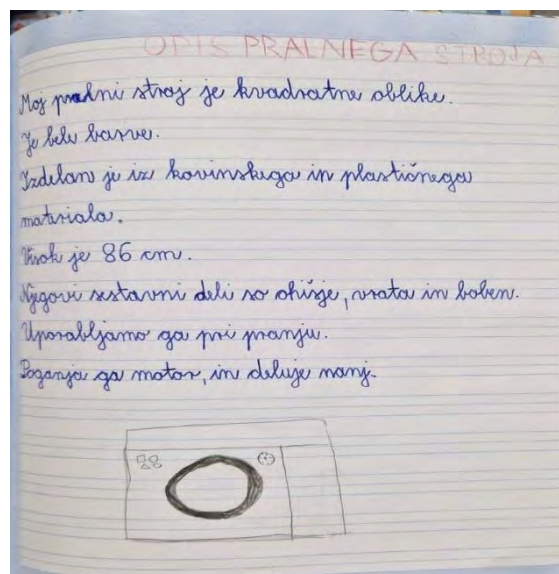 OPIS PRALNEGA STROJA
Moj pralni stroj je kvadratne oblike.
Je bele barve.
Izdelan je iz kovinskega in plastičnega
materiala.
Visok je 86 cm.
Njegovi sestavni deli so ohišje, vrata in boben.
Uporabljamo ga pri pranju.
Poganja ga motor, in deluje nanj.